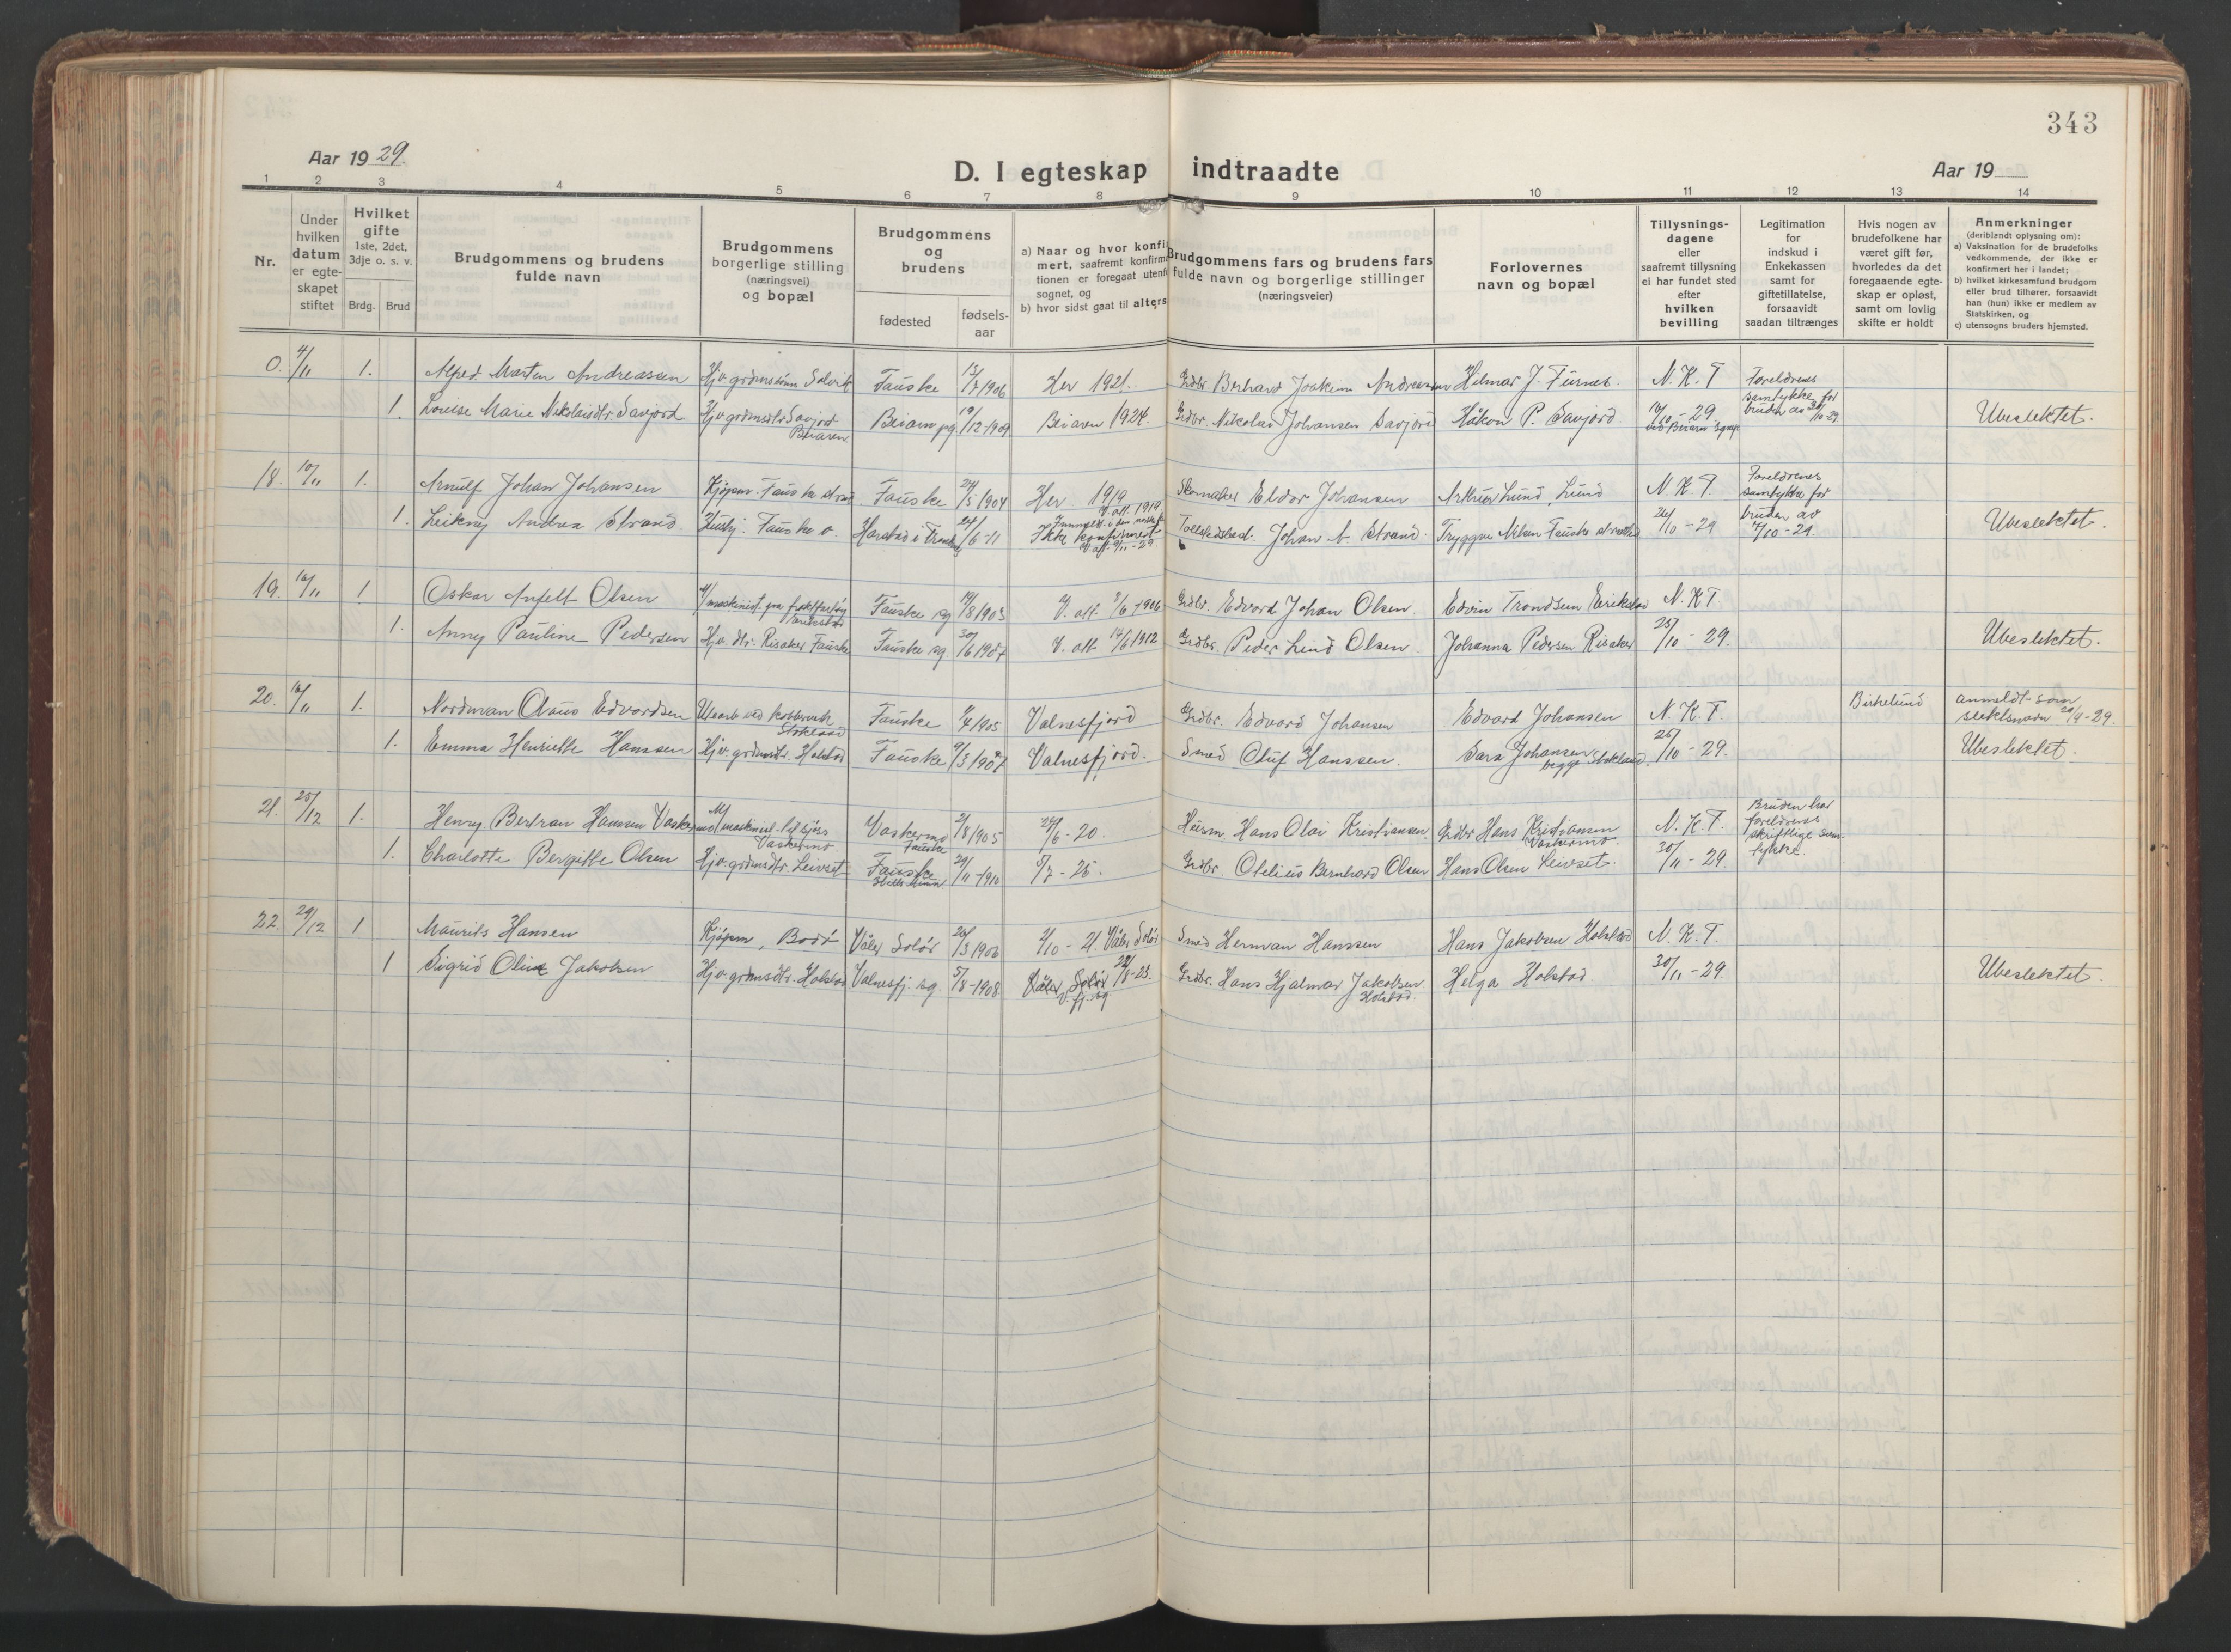 343
Aar 1929.
D. I egteskap indtraadte
Aar 19
1 2 3 4 5 6 7 8 9 10 11 12 13 14
Nr.
Under hvilken datum er egte-skapet stiftet
Hvilket gifte 1ste, 2det, 3dje o. s. v.
Brdg. Brud
Brudgommens og brudens fulde navn
Brudgommens borgerlige stilling (næringsvei) og bopæl
Brudgommens og brudens
fødested
fødsels-aar
a) Naar og hvor konfir
mert, saafremt konfirma
tionen er foregaat utenfo
sognet, og
b) hvor sidst gaat til alters
Brudgommens fars og brudens fars
fulde navn og borgerlige stillinger
(næringsveier)
Forlovernes
navn og bopæl
Tillysnings-
dagene
eller
saafremt tillysning
ei har fundet sted
efter
hvilken
bevilling
Legitimation
for
indskud i
Enkekassen
samt for
giftetillatelse,
forsaavidt
saadan tiltrænges
Hvis nogen av
brudefolkene har
været gift før,
hvorledes da det
foregaaende egte-
skap er opløst,
samt om lovlig
skifte er holdt
Anmerkninger
(deriblandt oplysning om):
a) Vaksination for de brudefolks
vedkommende, der ikke er
konfirmert her i landet;
b) hvilket kirkesamfund brudgom
eller brud tilhører, forsaavidt
han (hun) ikke er medlem av
Statskirken, og
c) utensogns bruders hjemsted.
0. 4/11 1. Alfred Marten Andreassen Hjv. grdmssønn Solvik Fauske 1906 Her 1921. Grdbr. Berhard Joakim Andreassen Hilmar J. Furnes. N. K. T Foreldrenes
samtykke for
bruden av
1. Lovise Marie Nikolaisdtr. Savjord Hjv. grdmsdtr Savjord
Beiaren Beiarn pg. 19/12 1909 Beiaren 1924. Grdbr. Nikolai Johansen Savjord Håkon P. Savjord. /10 - 29 Ubeslektet.
18. 10/11 1. Arnulf Johan Johansen Kjøpm. Fauske Fauske 24/5 1904 Her 1919 Skomaker Eldor Johansen Arthur Lund, Lund N. K. T. Foreldrenes
samtykke for
bruden av
/10 - 29.
1. Leikny Andrea Strand. Fauske Harstad i 24/6 - 11 Ikke konfirmert
V. alt. 9/11 - 29. Johan A. Strand. Tryggve Nilsen Fauske 26/10 - 29 Ubeslektet.
19. 16/11 1. Oskar Anfelt Olsen M/maskinist Fauske sg 19/8 1903 V. alt. 1906 Grdbr. Edvard Johan Olsen. Edvin Trondsen Erikstad N. K. T
1. Anny Pauline Pedersen Hjv. dtr. Risaker Fauske Fauske sg 30/6 1907 V. alt. 14/6 1912 Grdbr. Peder Lind Olsen. Johanna Pedersen Risaker 25/10 - 29. Ubeslektet.
20. 16/11 1. Nordman Olaus Edvardsen Fauske /4 1905 Valnesfjord Grdbr. Edvard Johansen Edvard Johansen N. K. T. Birkelund anmeldt som
slektsnavn 20/9 - 29.
1. Emma Henriette Hanssen Hjv. grdmsdtr. Holstad Fauske 9/3 1907 Valnesfjord. Smed Oluf Hanssen. Sara Johansen
begge Stokland. 26/10 - 29. Ubeslektet.
21. 25/12 1. Henry Bertran Hansen Vaskermo M/maskinist
Vaskermo Vaskermo
Fauske 2/8 1905 /6 - 20. Husm. Hans Olai Kristiansen Grdbr. Hans Kristiansen
Vaskermo. N. K. T. Bruden har
foreldrenes
skriftlige sam-
tykke.
1. Charlotte Bergitte Olsen Hjv. grdmsdtr. Leivset Fauske 24/11 - 1910 5/7 - 25. Grdbr. Otelius Bernhard Olsen Hans Olsen Leivset. 30/11 - 29.
22. 29/12 1 Maurits Hansen Kjøpm, Bodø Våler Solør 26/3 1906 2/10 - 21 Våler Solør Smed Herman Hanssen Hans Jakobsen Holstad N. K. T.
1 Sigrid Oline Jakobsen Hjv. grdmsdtr. Holstad Valnesfj. sg. 5/8 - 1908. Våler Solør
fj. sg. Grdbr. Hans Hjalmar Jakobsen
Holstad. Helga Holstad. 30/11 - 29. Ubeslektet.